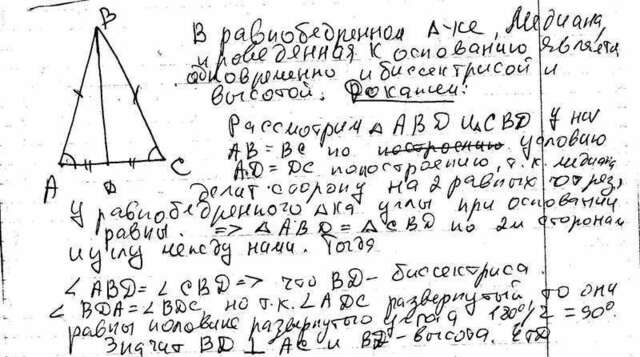 B
A
D
C
В равнобедренном Δ-ке, Медиана,
проведенная к основанию является
одновременно и биссектрисой и
высотой. Докажем:
Рассмотрим Δ ABD и CBD У них
AB = BC по построению условию
AD = DC по построению, т.к. медиана
делит сторону на 2 равных отрез,
У равнобедренного Δка углы при основании
равны. => Δ ABD = Δ CBD по 2м сторонам
и углу между ними. Тогда
∠ABD = ∠CBD => что BD - биссектриса.
∠BDA = ∠BDC но т.к. ∠ADC развернутый, то они
равны половине развернутого угла 180°/2 = 90°.
Значит BD ⊥ AC и BD - высота. ЧТД